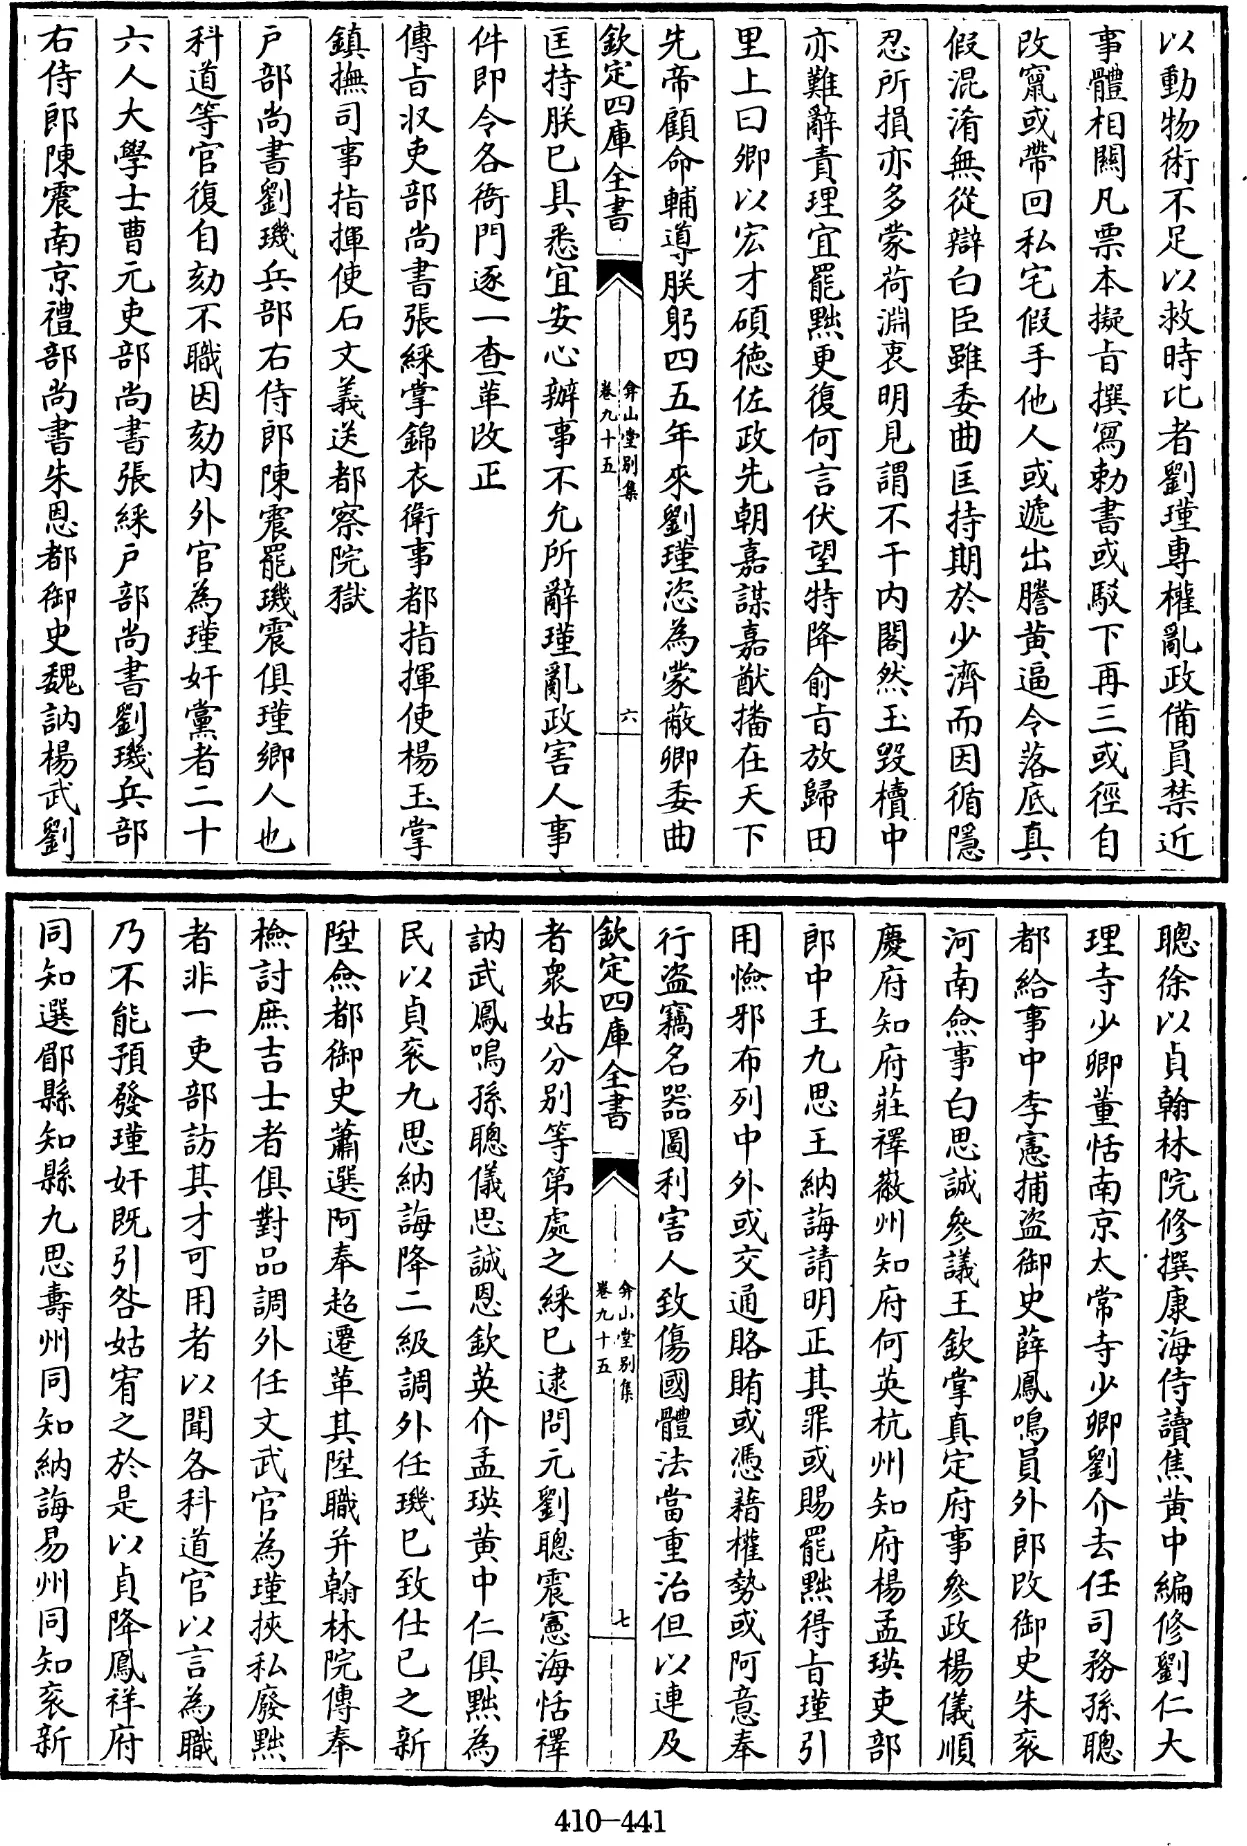 以動物術不足以救時比者劉瑾專權亂政備員禁近
事體相關凡票本擬旨撰寫勅書或駁下再三或徑自
改竄或帶回私宅假手他人或遞出謄黃逼令落底真
假混淆無從辯白臣雖委曲匡持期於少濟而因循隱
忍所損亦多蒙荷淵衷明見謂不干內閣然玉毀櫝中
亦難辭責理宜罷黜更復何言伏望特降俞旨放歸田
里上曰卿以宏才碩德佐政先朝嘉謀嘉猷播在天下
先帝顧命輔導朕躬四五年來劉瑾恣為蒙蔽卿委曲
欽定四庫全書
弇山堂別集
卷九十五
六
匡持朕已具悉宜安心辦事不允所辭瑾亂政害人事
件即令各衙門逐一查革改正
傳旨収吏部尚書張綵掌錦衣衛事都指揮使楊玉掌
鎮撫司事指揮使石文義送都察院獄
戶部尚書劉璣兵部右侍郎陳震罷璣震俱瑾鄉人也
科道等官復自劾不職因劾內外官為瑾奸黨者二十
六人大學士曹元吏部尚書張綵戶部尚書劉璣兵部
右侍郎陳震南京禮部尚書朱恩都御史魏訥楊武劉
聰徐以貞翰林院修撰康海侍讀焦黃中編修劉仁大
理寺少卿董恬南京太常寺少卿劉介去任司務孫聰
都給事中李憲捕盜御史薛鳳鳴員外郎改御史朱衮
河南僉事白思誠參議王欽掌真定府事參政楊儀順
慶府知府莊襗徽州知府何英杭州知府楊孟瑛吏部
郎中王九思王納誨請明正其罪或賜罷黜得旨瑾引
用憸邪布列中外或交通賂賄或憑藉權勢或阿意奉
行盜竊名器圖利害人致傷國體法當重治但以連及
欽定四庫全書
弇山堂別集
卷九十五
七
者衆姑分別等第處之綵已逮問元劉聰震憲海恬襗
訥武鳳鳴孫聰儀思誠恩欽英介孟瑛黃中仁俱黜為
民以貞衮九思納誨降二級調外任璣已致仕已之新
陞僉都御史蕭選阿奉超遷革其陞職并翰林院傳奉
檢討庶吉士者俱對品調外任文武官為瑾挾私廢黜
者非一吏部訪其才可用者以聞各科道官以言為職
乃不能預發瑾奸既引咎姑宥之於是以貞降鳳祥府
同知選鄖縣知縣九思壽州同知納誨易州同知衮新
410-441